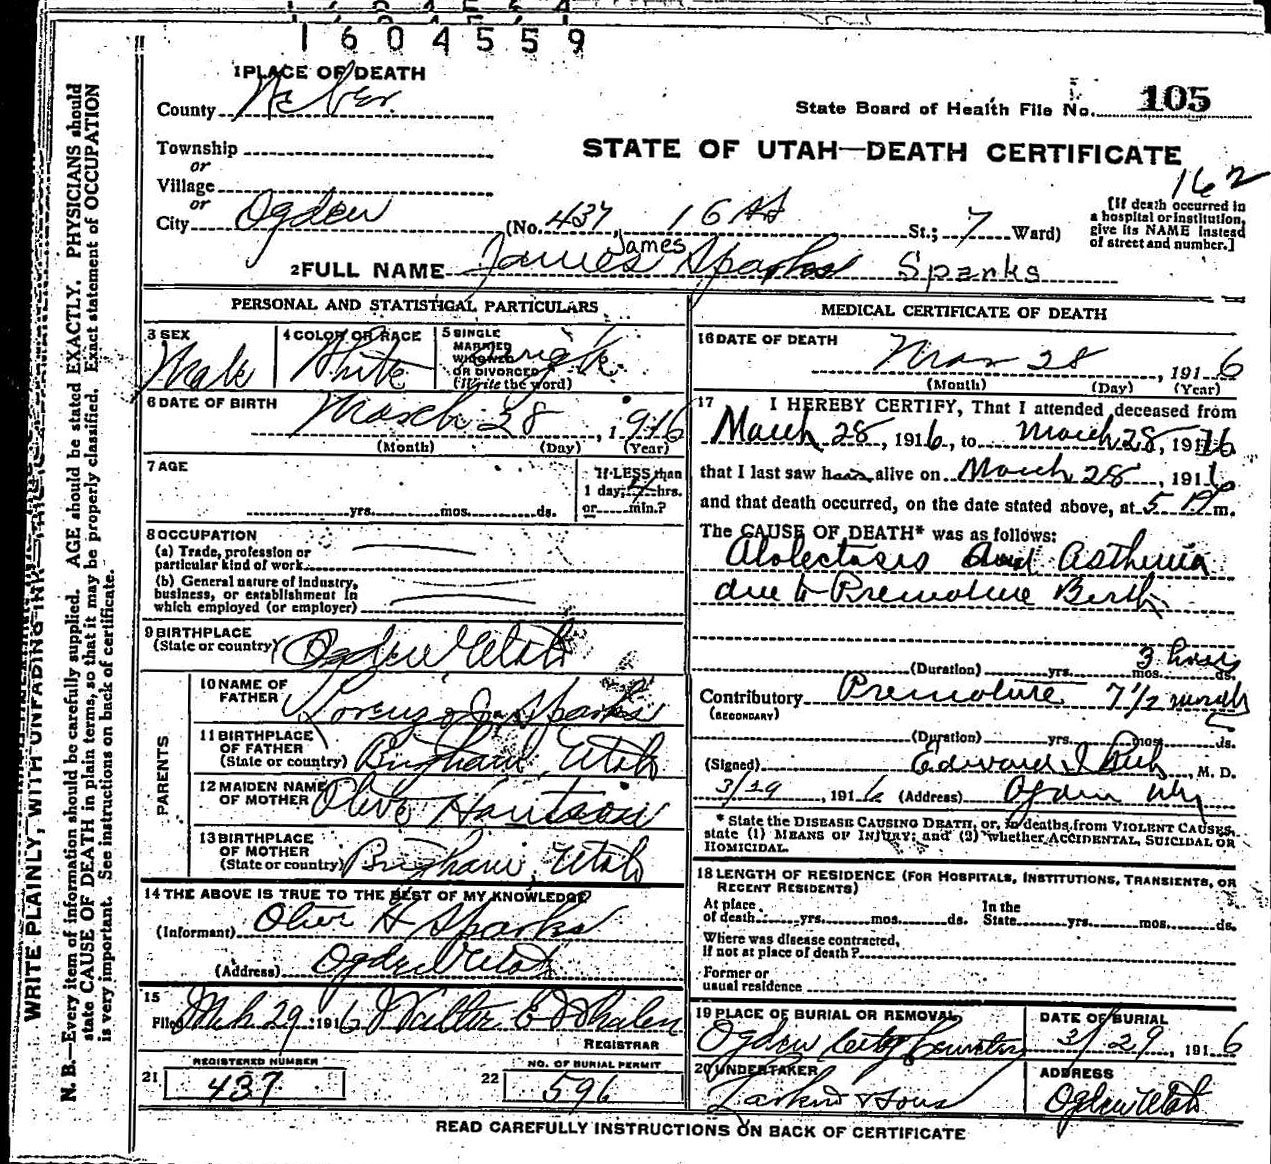 1604559
1 PLACE OF DEATH
County Weber
State Board of Health File No. 105
Township
or
STATE OF UTAH—DEATH CERTIFICATE
Village
or
162
City Ogden (No. 437, 16 St.; 7 Ward)
[If death occurred in
a hospital or institution,
give its NAME instead
of street and number.]
James
2 FULL NAME James Sparks Spanks
PERSONAL AND STATISTICAL PARTICULARS
3 SEX
Male
4 COLOR OR RACE
White
5 SINGLE
MARRIED
WIDOWED
OR DIVORCED
(Write the word)
Single
6 DATE OF BIRTH
March 28, 1916
(Month) (Day) (Year)
7 AGE
yrs. mos. ds.
If LESS than
1 day, 4 hrs.
or min.?
8 OCCUPATION
(a) Trade, profession or
particular kind of work
(b) General nature of industry,
business, or establishment in
which employed (or employer)
9 BIRTHPLACE
(State or country) Ogden Utah
PARENTS
10 NAME OF
FATHER Lorenzo J Sparks
11 BIRTHPLACE
OF FATHER
(State or country) Brigham, Utah
12 MAIDEN NAME
OF MOTHER Olive
13 BIRTHPLACE
OF MOTHER
(State or country) Brigham, Utah
14 THE ABOVE IS TRUE TO THE BEST OF MY KNOWLEDGE
(Informant) Olive H Sparks
(Address) Ogden Utah
15
Filed Mch 29 1916 Walter E Whalen
REGISTRAR
REGISTERED NUMBER
21 437
NO. OF BURIAL PERMIT
22 596
MEDICAL CERTIFICATE OF DEATH
16 DATE OF DEATH
Mar 28, 1916
(Month) (Day) (Year)
17 I HEREBY CERTIFY, That I attended deceased from
March 28, 1916, to March 28, 1916
that I last saw h alive on March 28, 1916
and that death occurred, on the date stated above, at 5 P m.
The CAUSE OF DEATH* was as follows:
Atolectasis and Asthenia
due to Premature Birth
3 hours
(Duration) yrs. mos. ds.
Contributory Premature 7 1/2 months
(SECONDARY)
(Duration) yrs. mos. ds.
(Signed) Edward I Rich, M. D.
3/29, 1916 (Address) Ogden Utah
* State the DISEASE CAUSING DEATH, or, in deaths from VIOLENT CAUSES,
state (1) MEANS OF INJURY; and (2) whether ACCIDENTAL, SUICIDAL OR
HOMICIDAL.
18 LENGTH OF RESIDENCE (FOR HOSPITALS, INSTITUTIONS, TRANSIENTS, OR
RECENT RESIDENTS)
At place
of death yrs. mos. ds.
In the
State yrs. mos. ds.
Where was disease contracted,
if not at place of death?
Former or
usual residence
19 PLACE OF BURIAL OR REMOVAL
Ogden City Cemetery
DATE OF BURIAL
3/29, 1916
20 UNDERTAKER
Larkin & Sons
ADDRESS
Ogden Utah
READ CAREFULLY INSTRUCTIONS ON BACK OF CERTIFICATE
WRITE PLAINLY, WITH UNFADING INK
N. B.—Every item of information should be carefully supplied. AGE should be stated EXACTLY. PHYSICIANS should
state CAUSE OF DEATH in plain terms, so that it may be properly classified. Exact statement of OCCUPATION
is very important. See instructions on back of certificate.